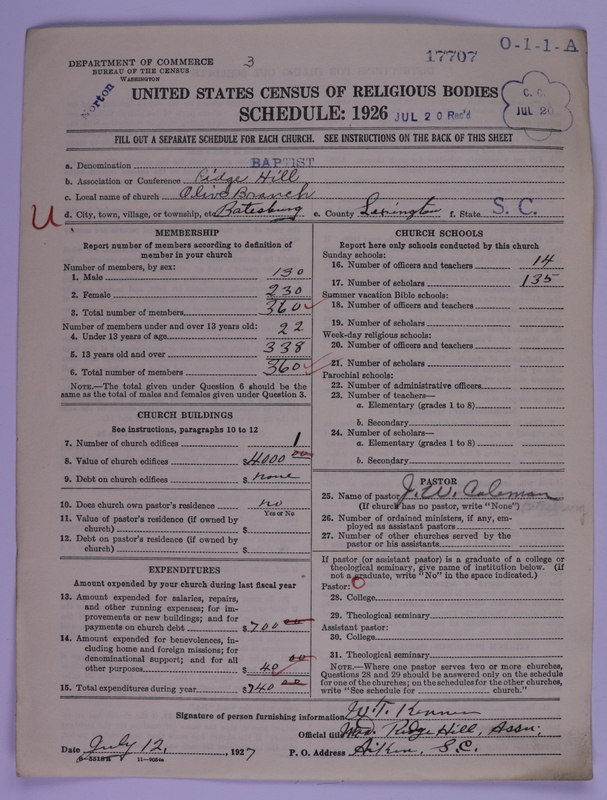 DEPARTMENT OF COMMERCE
BUREAU OF THE CENSUS
WASHINGTON
3
17707
O-I-1-A
Norton
UNITED STATES CENSUS OF RELIGIOUS BODIES
SCHEDULE: 1926
JUL 20 Rec'd
C. C.
JUL 20
FILL OUT A SEPARATE SCHEDULE FOR EACH CHURCH. SEE INSTRUCTIONS ON THE BACK OF THIS SHEET
a. Denomination BAPTIST
b. Association or Conference Ridge Hill
c. Local name of church Olive Branch
U
d. City, town, village, or township, etc. Batesburg e. County Lexington f. State S. C.
MEMBERSHIP
Report number of members according to definition of
member in your church
Number of members, by sex:
1. Male 130
2. Female 230
3. Total number of members 360
Number of members under and over 13 years old:
4. Under 13 years of age 22
5. 13 years old and over 338
6. Total number of members 360
NOTE.—The total given under Question 6 should be
same as the total of males and females given under Question 3.
CHURCH BUILDINGS
See instructions, paragraphs 10 to 12
7. Number of church edifices 1
8. Value of church edifices $4000 00
9. Debt on church edifices $ none
10. Does church own pastor's residence no
Yes or No
11. Value of pastor's residence (if owned by
church) $
12. Debt on pastor's residence (if owned by
church) $
EXPENDITURES
Amount expended by your church during last fiscal year
13. Amount expended for salaries, repairs,
and other running expenses; for im-
provements or new buildings; and for
payments on church debt $700 00
14. Amount expended for benevolences, in-
cluding home and foreign missions; for
denominational support; and for all
other purposes $ 40 00
15. Total expenditures during year $740 00
CHURCH SCHOOLS
Report here only schools conducted by this church
Sunday schools:
16. Number of officers and teachers 14
17. Number of scholars 135
Summer vacation Bible schools:
18. Number of officers and teachers
19. Number of scholars
Week-day religious schools:
20. Number of officers and teachers
21. Number of scholars
Parochial schools:
22. Number of administrative officers
23. Number of teachers—
a. Elementary (grades 1 to 8)
b. Secondary
24. Number of scholars—
a. Elementary (grades 1 to 8)
b. Secondary
PASTOR
25. Name of pastor J. W. Coleman
(If church has no pastor, write "None")
26. Number of ordained ministers, if any, em-
ployed as assistant pastors
27. Number of other churches served by the
pastor or his assistants
If pastor (or assistant pastor) is a graduate of a college or
theological seminary, give name of institution below. (If
not a graduate, write "No" in the space indicated.)
Pastor: O
28. College
29. Theological seminary
Assistant pastor:
30. College
31. Theological seminary
NOTE.—Where one pastor serves two or more churches,
Questions 28 and 29 should be answered only on the schedule
for one of the churches; on the schedules for the other churches,
write "See schedule for church."
Signature of person furnishing information W. T. Kenner
Official title Mod. Ridge Hill, Assn.
Date July 12, 1927 P. O. Address Aiken, S.C.